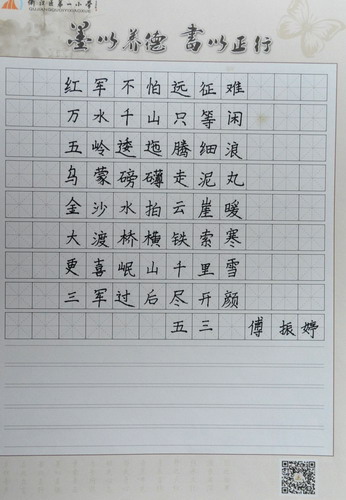 墨以养德 書以正行
红军不怕远征难
万水千山只等闲
五岭逶迤腾细浪
乌蒙磅礴走泥丸
金沙水拍云崖暖
大渡桥横铁索寒
更喜岷山千里雪
三军过后尽开颜
五三 傅振婷